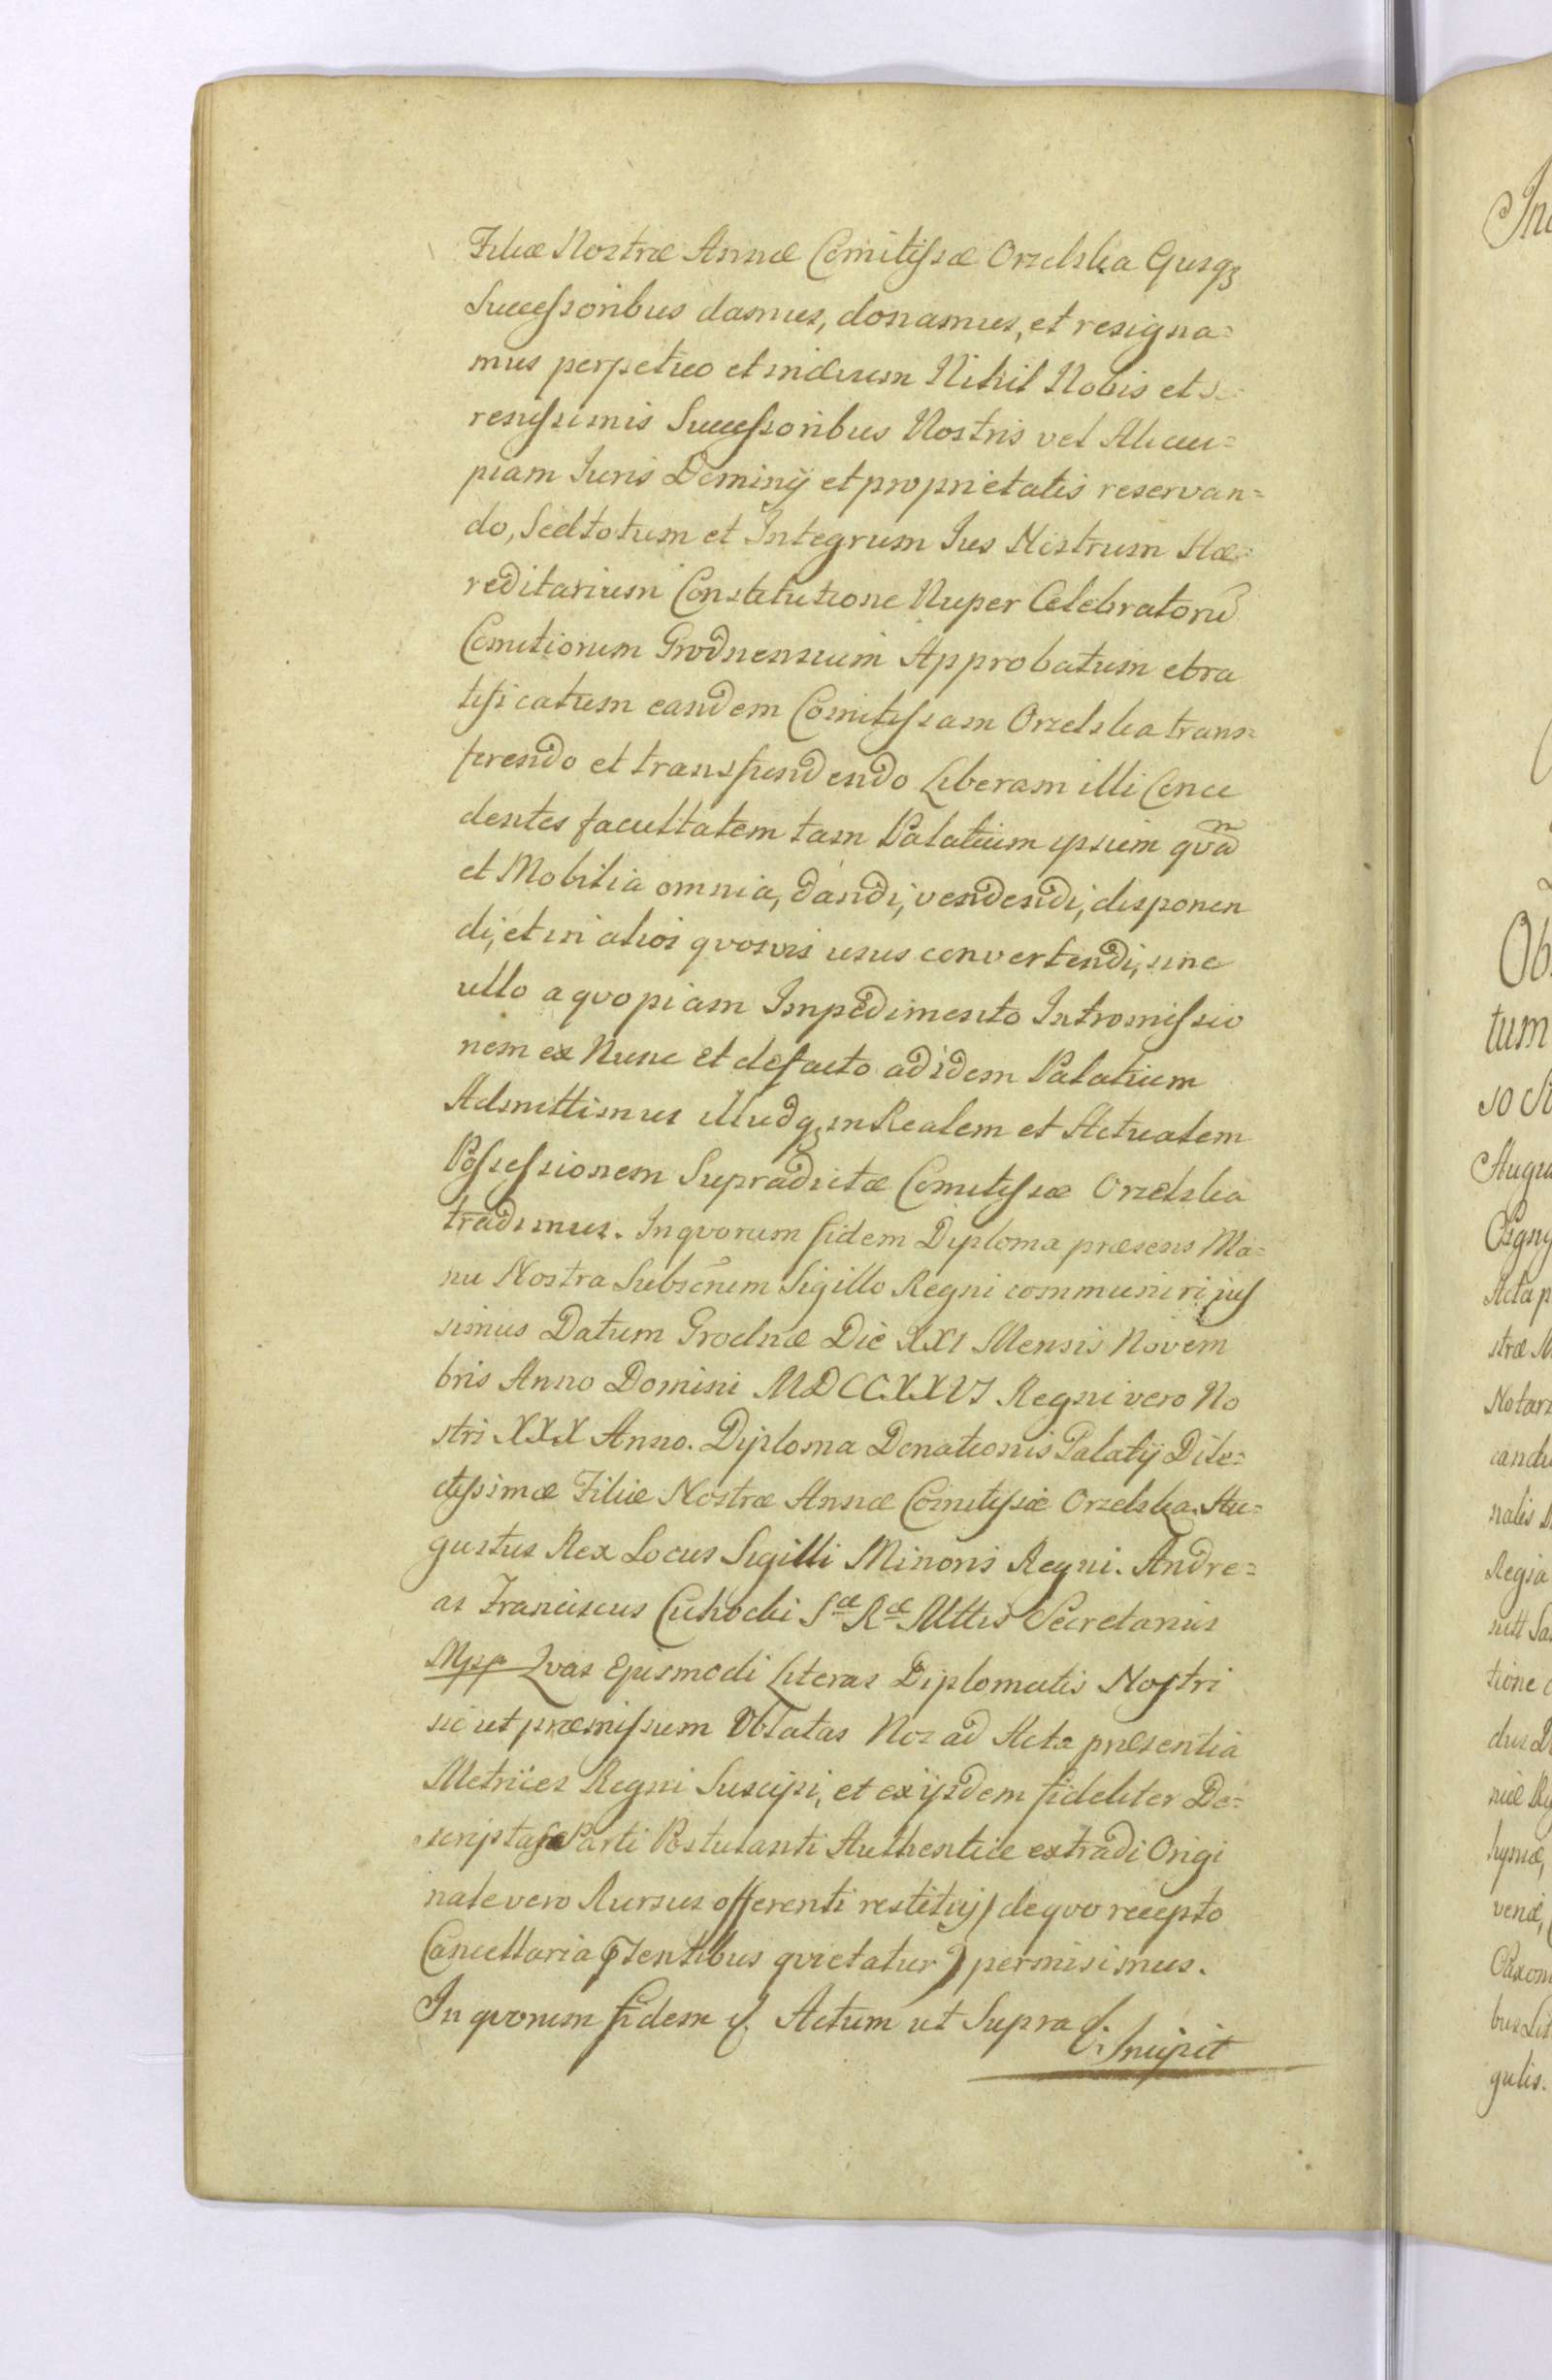 Filiæ Nostræ Annæ Comitissæ Orzelska Ejusq3
Successoribus damus, donamus, et resigna=
mus perpetuo et in ævum Nihil Nobis et Se
renissimis Successoribus Nostris vel Alicui=
piam Iuris Dominij et proprietatis reservan=
do, Sed totum et Integrum Ius Nostrum Hæ=
reditarium Constitutione Nuper Celebratorũ
Comitiorum Grodnensium Approbatum et ra
tificatum eandem Comitissam Orzelska trans=
ferendo et transfundendo Liberam illi Conce
dentes facultatem tam Palatium ipsum qvã
et Mobilia omnia, dandi, vendendi, disponen
di, et in alios qvosvis usus convertendi, sine
ullo a qvopiam Impedimento Intromissio
nem ex Nunc et de facto ad idem Palatium
Admittimus illudq3 in Realem et Actualem
Possessionem Supradictæ Comitissæ Orzelska
tradimus. In qvorum fidem Diploma præsens Ma=
nu Nostra Subscrium Sigillo Regni communiri jus
simus Datum Grodnæ Die XXI Mensis Novem
bris Anno Domini MDCCXXVI Regni vero No
stri XXX Anno. Diploma Donationis Palatij Dile=
ctissimæ Filiæ Nostræ Annæ Comitissæ Orzelska. Au=
gustus Rex Locus Sigilli Minoris Regni. Andre=
as Franciscus Cichocki Sæ Ræ Mttis Secretarius
Mpp Qvas Ejusmodi Literas Diplomatis Nostri
sic ut præmissum Oblatas Nos ad Acta præsentia
Metrices Regni Suscipi, et ex ijsdem fideliter De=
scriptas Parti Postulanti Authentice extradi Origi
nale vero Rursus offerenti restitui (de qvo recepto
Cancellaria pntentibus qvietatur) permisimus.
In qvorum fidem &. Actum ut Supra &.
Incipit
Inc
Ob
tum
so St
Augu
Cigny
Acta p
stræ M
Notari
candi
nalis
Regia
nitt Sa
tione
dus D
niæ
hyniæ,
veniæ,
Caxoni
bus Lit
gulis.